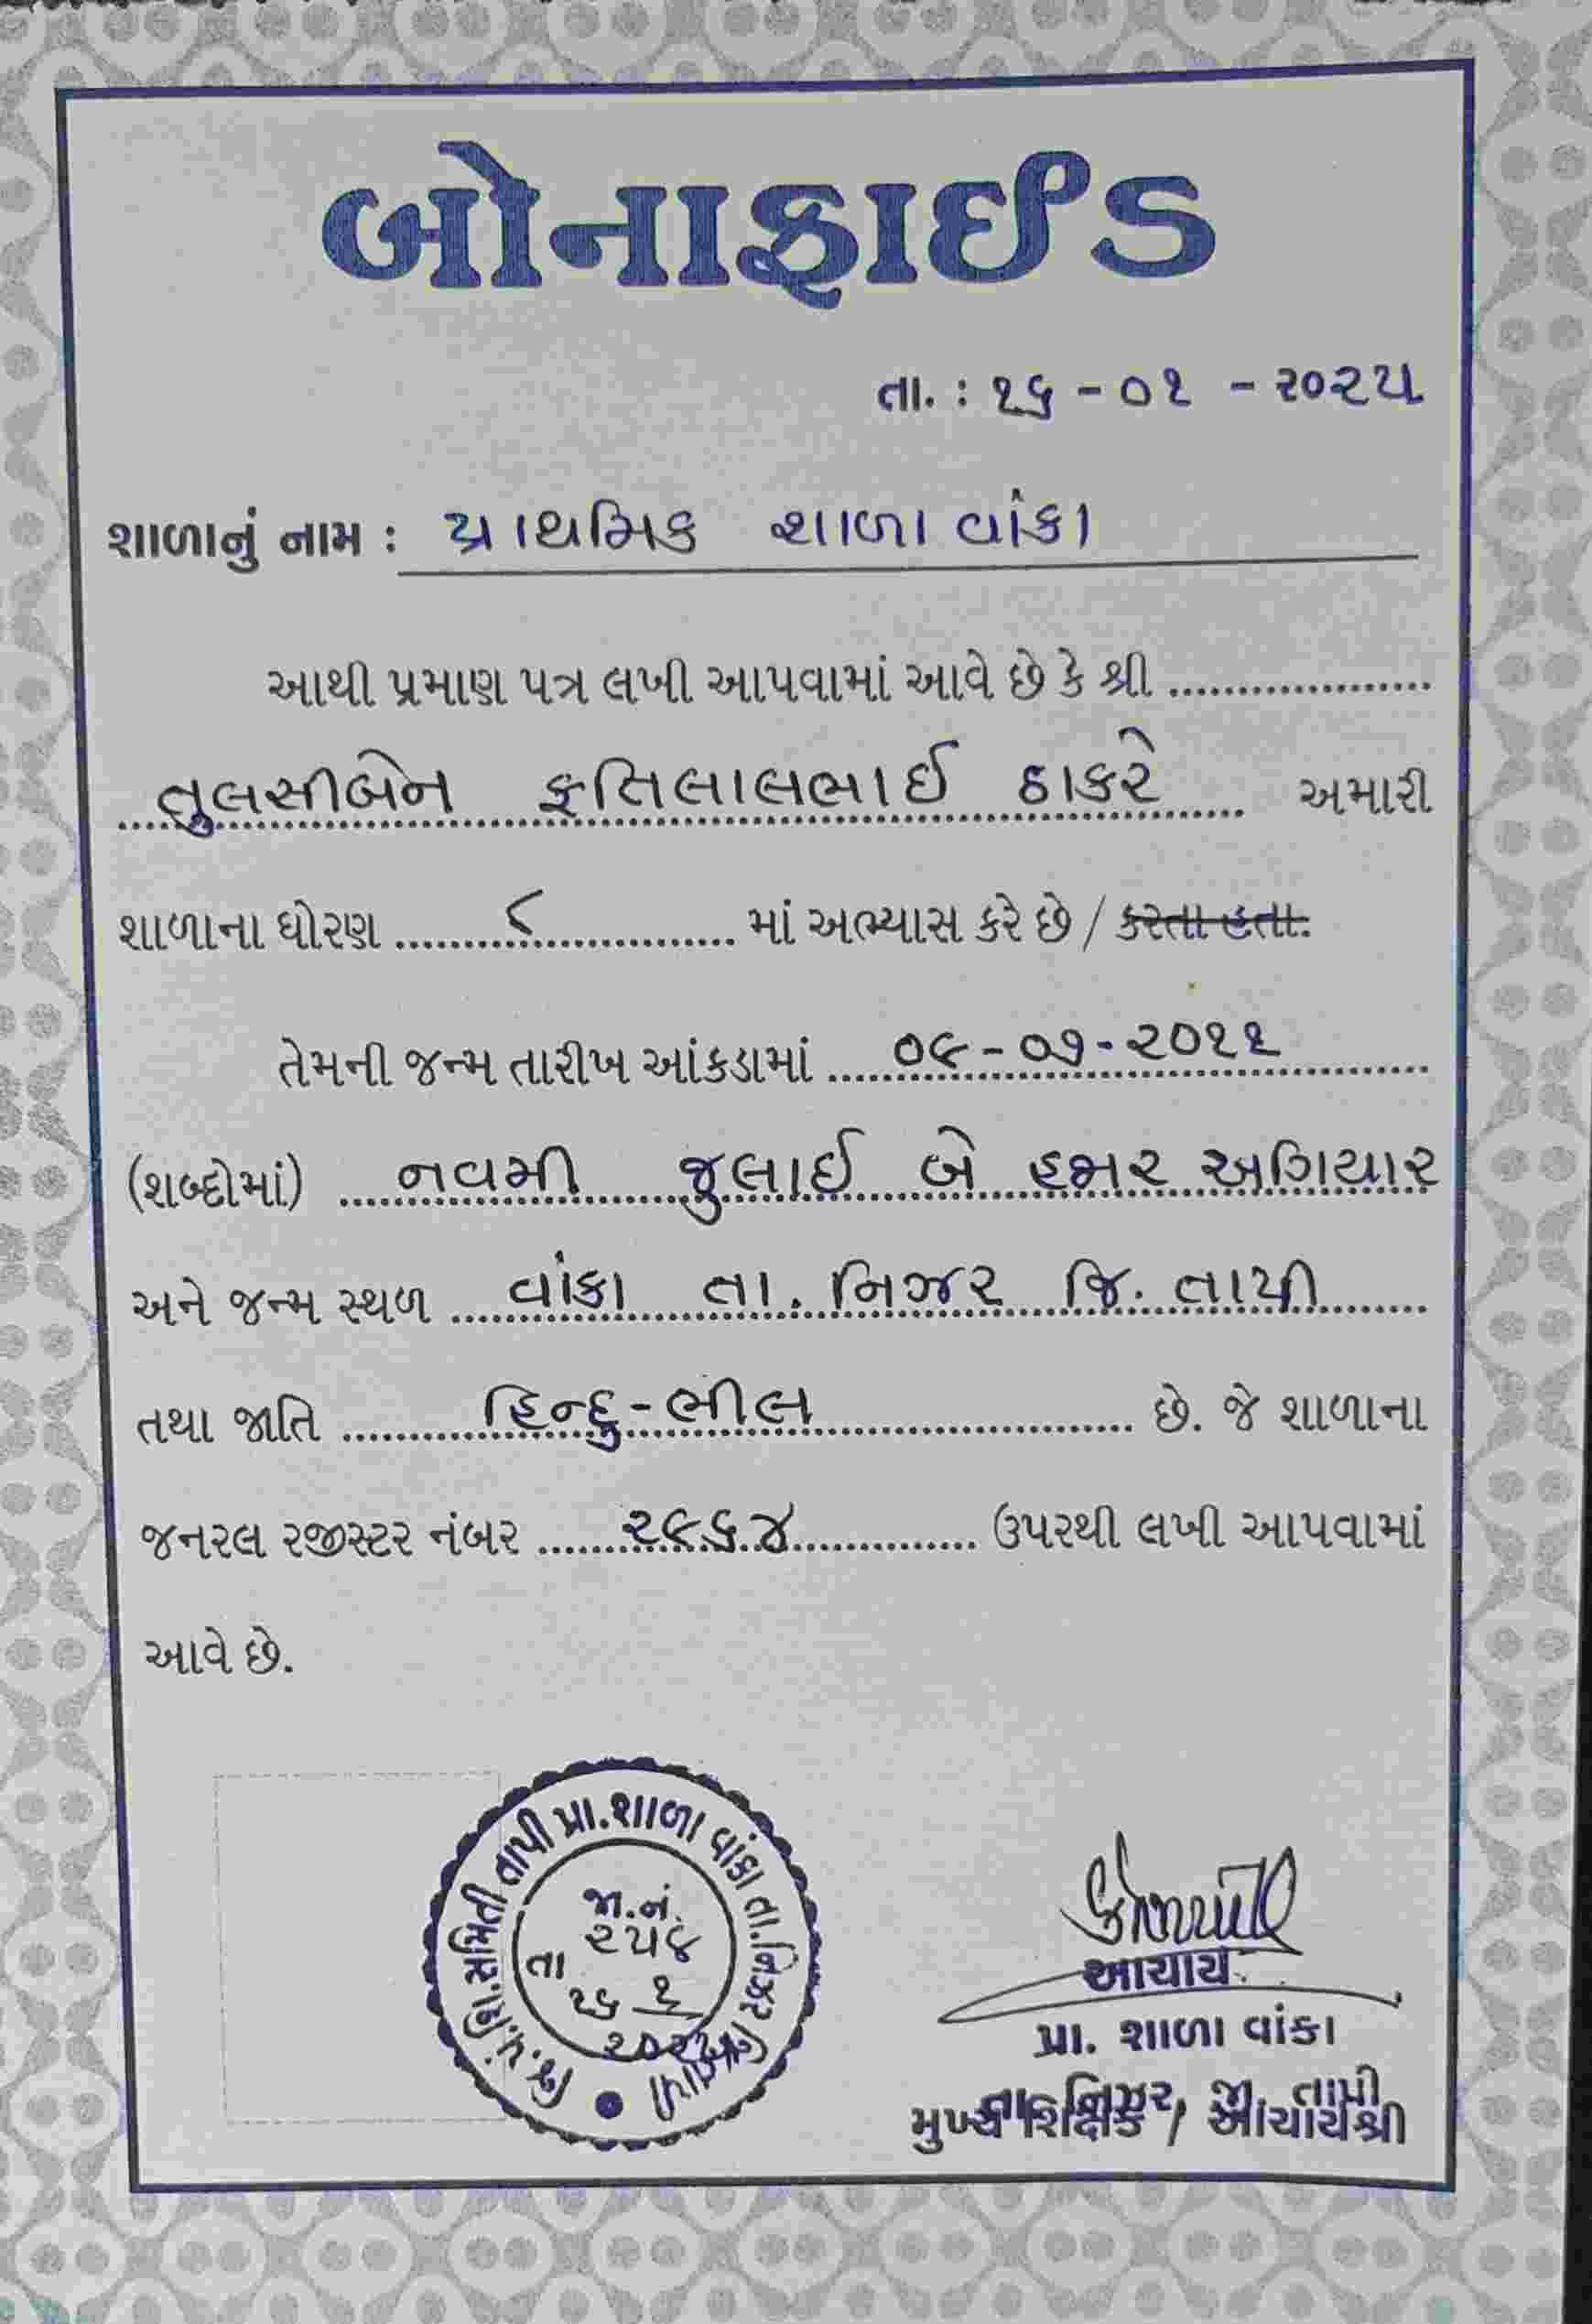 બોનાફાઈડ
તા. : ૧૬ - ૦૧ - ૨૦૨૫
શાળાનું નામ : પ્રાથમિક શાળા વાંકા
આથી પ્રમાણ પત્ર લખી આપવામાં આવે છે કે શ્રી ....................
તુલસીબેન ફતિલાલભાઈ ઠાકરે અમારી
શાળાના ધોરણ ૮ માં અભ્યાસ કરે છે / કરતા હતા.
તેમની જન્મ તારીખ આંકડામાં ૦૯-૦૭-૨૦૧૧
(શબ્દોમાં) નવમી જુલાઈ બે હજાર અગિયાર
અને જન્મ સ્થળ વાંકા તા. નિઝર જિ. તાપી
તથા જાતિ હિન્દુ-ભીલ છે. જે શાળાના
જનરલ રજીસ્ટર નંબર ૨૯૬૪ ઉપરથી લખી આપવામાં
આવે છે.
જિ.પં.શિ.સમિતી તાપી પ્રા.શાળા વાંકા તા.નિઝર જિ.તાપી
જા.નં.
૨૫૪
તા
૧૬ ૧
૨૦૨૫
આચાર્ય
પ્રા. શાળા વાંકા
તા. નિઝર, જી. તાપી
મુખ્ય શિક્ષક / આચાર્યશ્રી